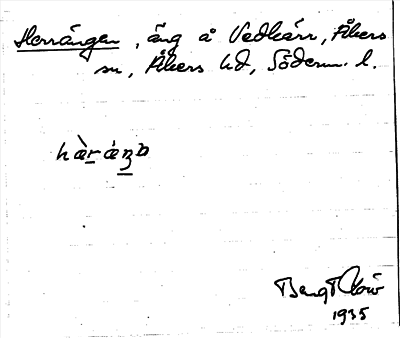 Herrängen, äng å Vedkärr, Åkers
sn, Åkers hd, Söderm. l.
hæ̀ræŋƨ
Bengt
1935